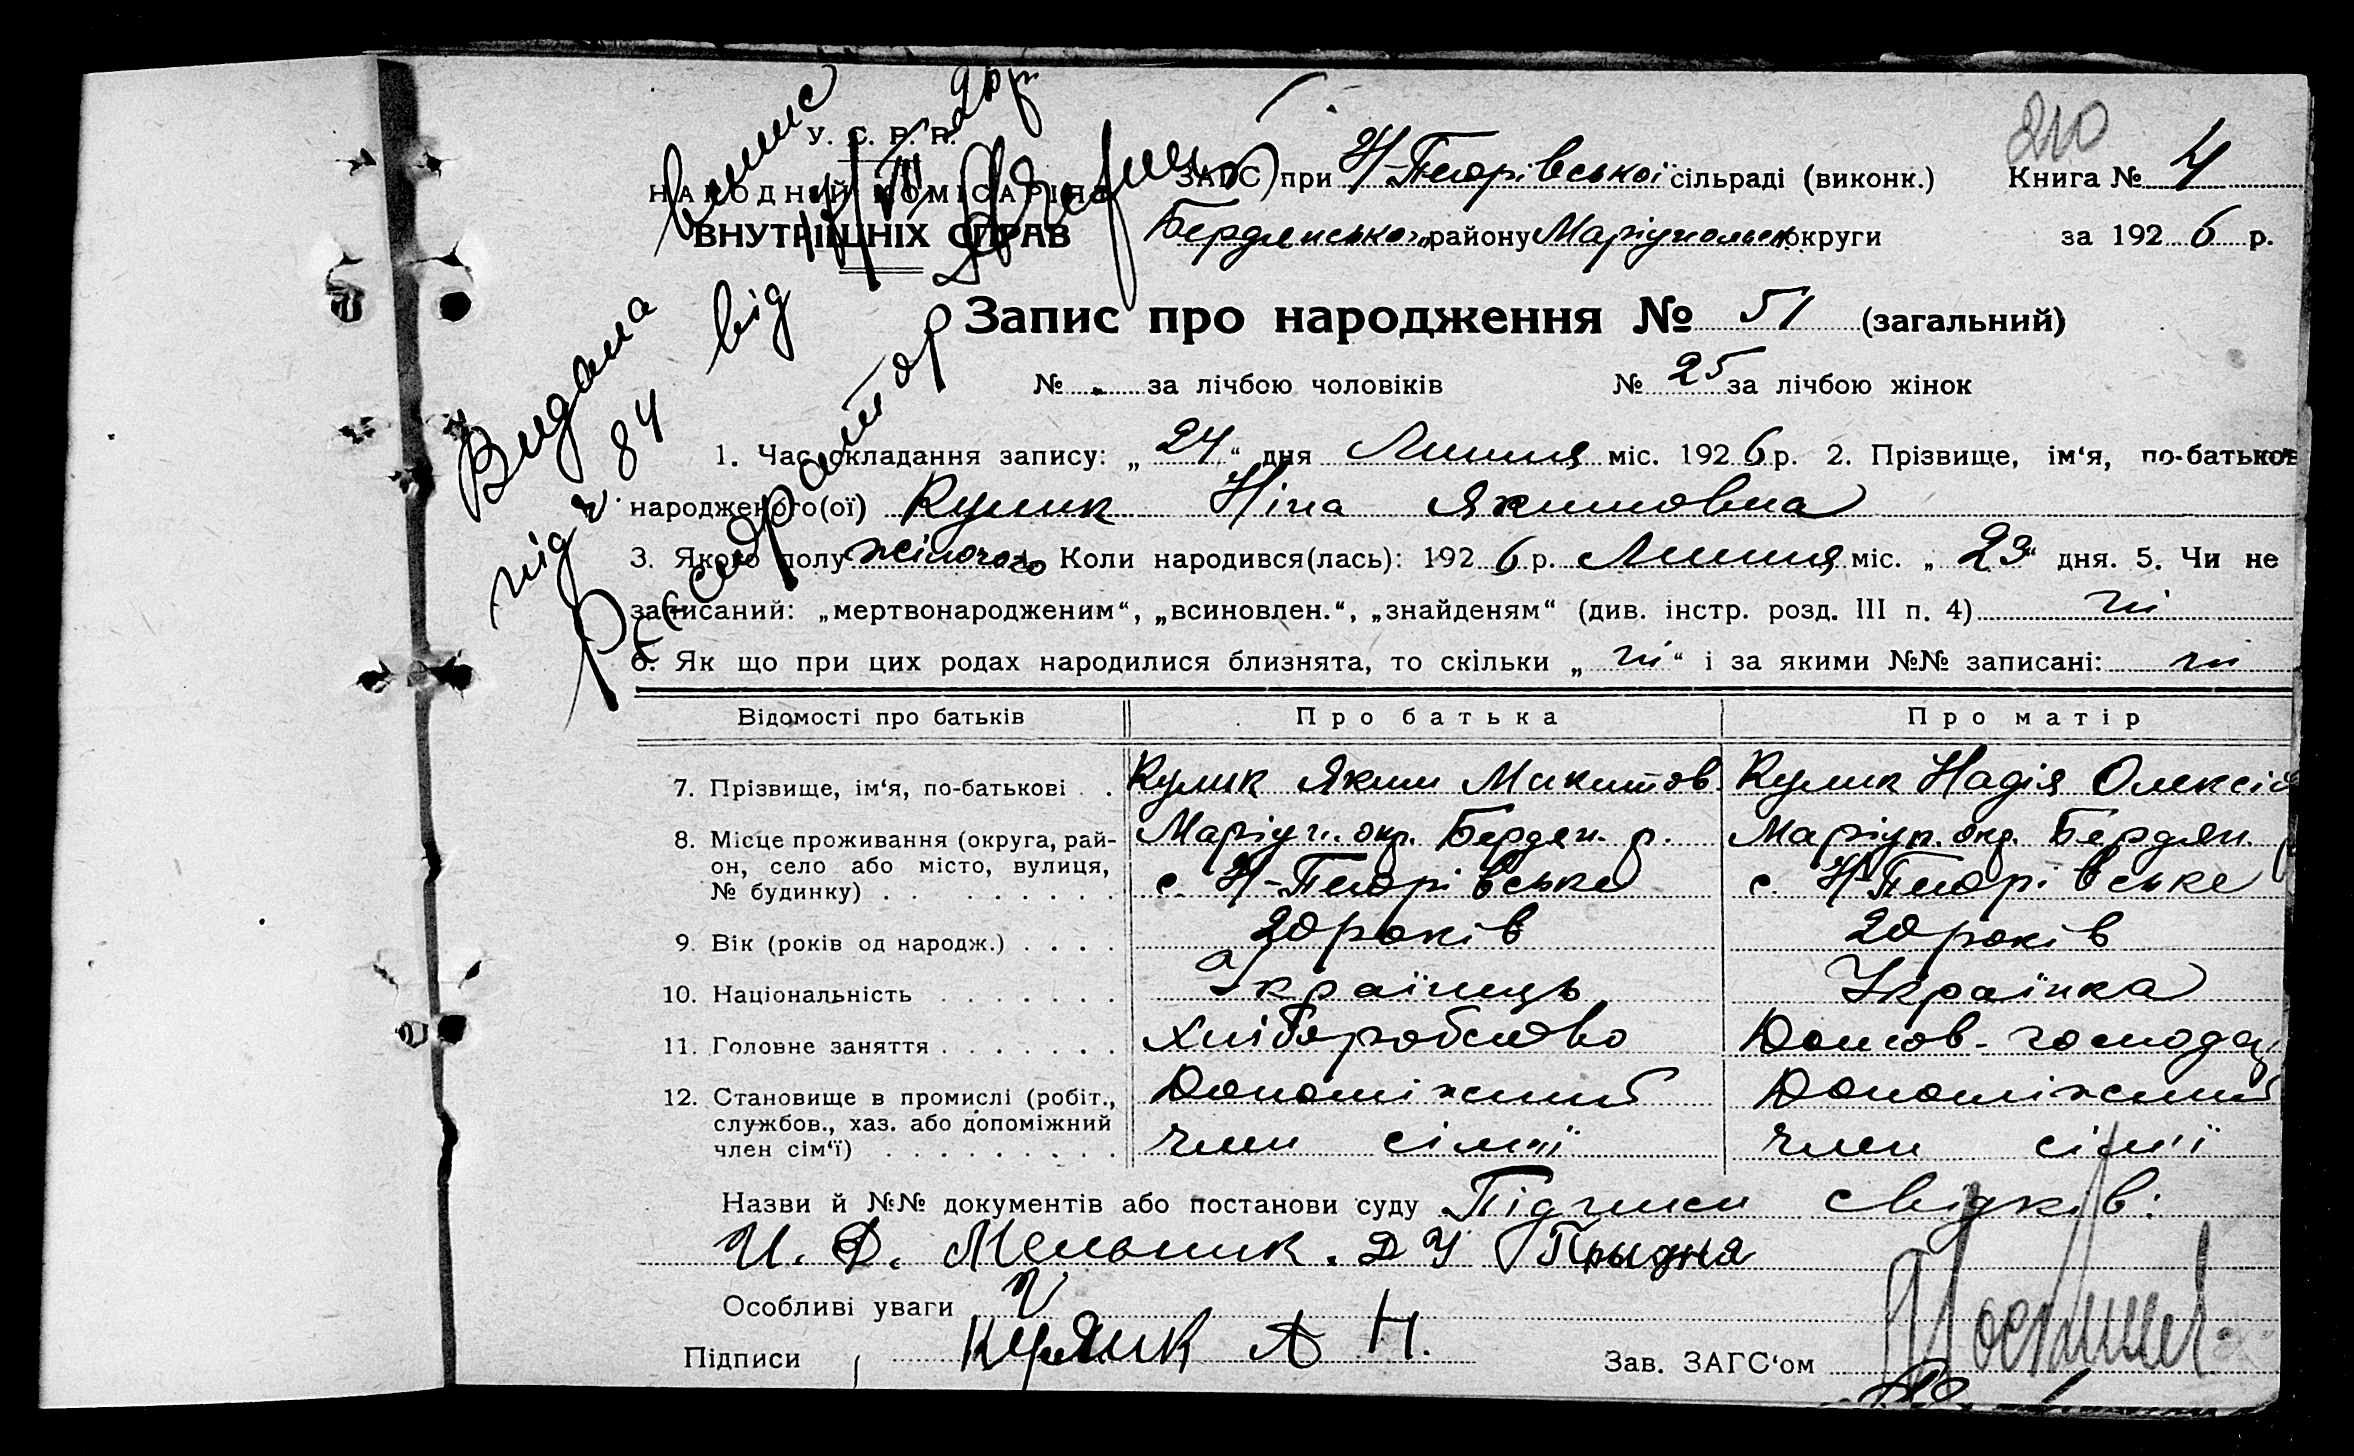 210
У. С. Р. Р.
НАРОДНИЙ КОМІСАРІЯТ
ВНУТРІШНІХ СПРАВ
ЗАГС при сільраді (виконк.) Книга № 4
Бердянського району Маріупольськ округи за 1926 р.
Видана випис
під ч. 84 від
Реєстратор
Запис про народження № 51 (загальний)
№ - за лічбою чоловіків № 25 за лічбою жінок
1. Час складання запису: „24“ дня Липня міс. 1926 р. 2. Прізвище, ім‘я, по-батькові
народженого(ої) Кулик Ніна Якимовна
3. Якого полу жіночого Коли народився(лась): 1926 р. Липня міс. „23“ дня. 5. Чи не
записаний: „мертвонародженим“, „всиновлен.“, „знайденям“ (див. інстр. розд. III п. 4) ні
6. Як що при цих родах народилися близнята, то скільки „ні“ і за якими №№ записані: ні
Відомості про батьків Про батька Про матір
7. Прізвище, ім‘я, по-батькові . . Кулик Яким Микитов. Кулик Надія Олексі
8. Місце проживання (округа, рай- Маріуп. окр. Бердян. р. Маріуп. окр. Бердян. р
он, село або місто, вулиця,
№ будинку) . . . . . . . . с. с.
9. Вік (років од народж.) . . . . 20 років 20 років
10. Національність . . . . . . . Українець Українка
11. Головне заняття . . . . . . . Хліборобство Домов. господ
12. Становище в промислі (робіт., Допоміжний Допоміжний
службов., хаз. або допоміжний
член сім‘ї) . . . . . . . . . член сімʼї член сімʼї
Назви й №№ документів або постанови суду Підписи свідків:
И. Ф. Мельник. Д У
Особливі уваги
Підписи Кулик А Н.
Зав. ЗАГС‘ом